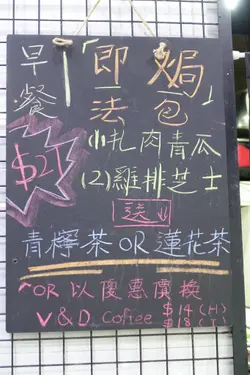 早餐
「即焗
法包」
(1)扎肉青瓜
(2)雞排芝士
送↓
青檸茶 OR 蓮花茶
OR 以優惠價換
V & D Coffee $14 (H)
$18 (I)